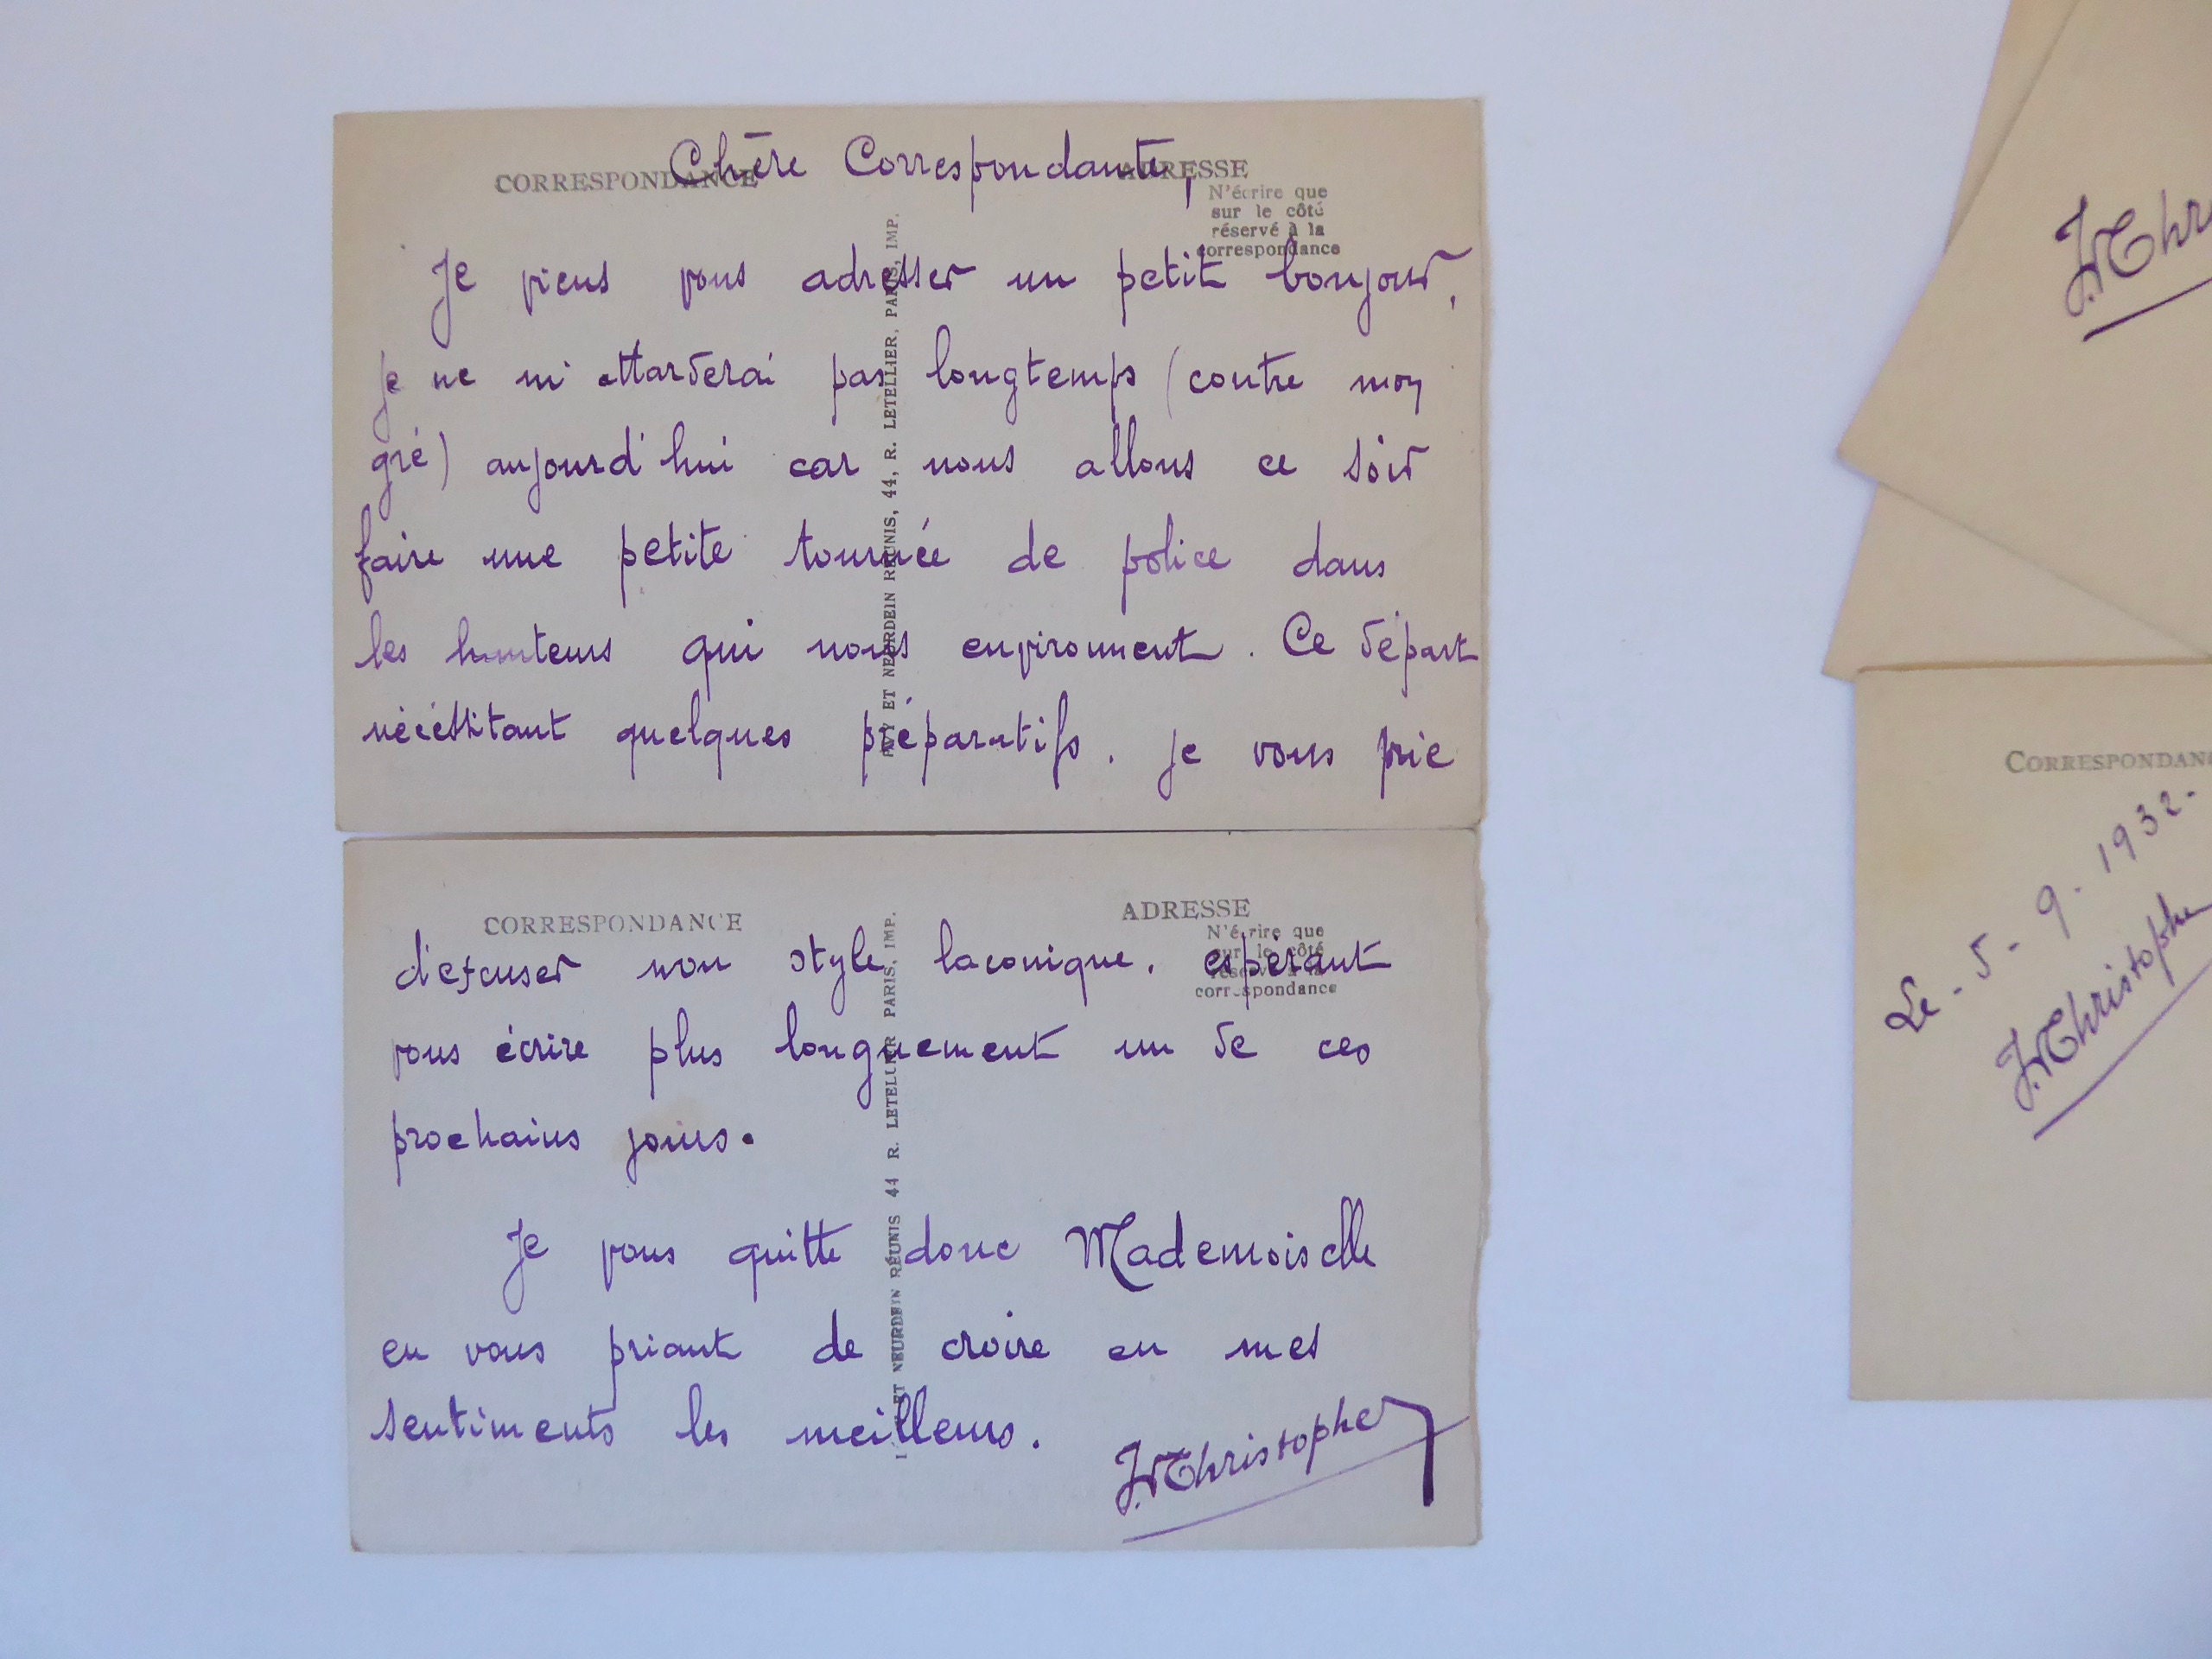 CORRESPONDANCE
ADRESSE
N'écrire que
sur le côté
réservé à la
correspondance
Chère Correspondante,
Je viens vous adresser un petit bonjour,
je ne m'attarderai pas longtemps (contre mon
gré) aujourd'hui car nous allons ce soir
faire une petite tournée de police dans
les hauteurs qui nous environnent. Ce départ
nécéssitant quelques préparatifs. je vous prie
ET NEURDEIN RÉUNIS, 44, R. LETELLIER, PARIS, IMP.
CORRESPONDANCE
ADRESSE
N'écrire que
sur le côté
réservé à la
correspondance
d'excuser mon style laconique. espérant
vous écrire plus longuement un de ces
prochains jours.
Je vous quitte donc Mademoiselle
en vous priant de croire en mes
sentiments les meilleurs.
J. Christophe
ET NEURDEIN RÉUNIS 44 R. LETELLIER PARIS, IMP.
J. Chr
CORRESPONDAN
Le - 5 - 9 - 1932 -
J. Christophe